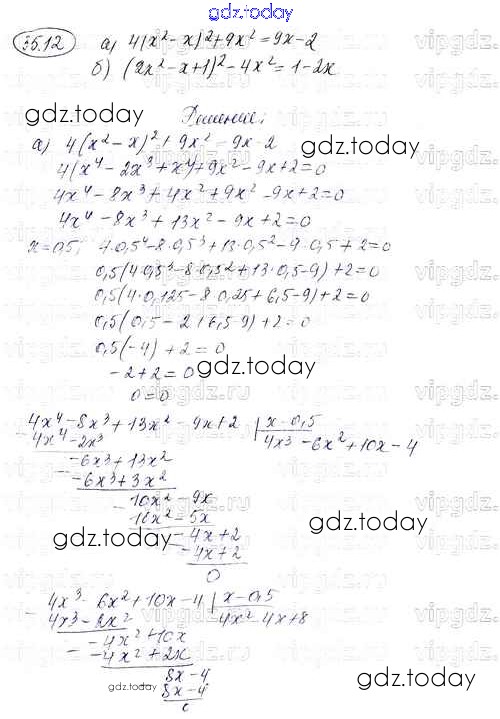 gdz.today
35.12 а) 4(x²-x)²+9x²=9x-2
б) (2x²-x+1)²-4x²=1-2x
gdz.today
Решение:
а) 4(x²-x)²+9x²-9x-2
4(x⁴-2x³+x⁴)+9x²-9x+2=0
4x⁴-8x³+4x²+9x²-9x+2=0
4x⁴-8x³+13x²-9x+2=0
x=0,5; 4·0,5⁴-8·0,5³+13·0,5²-9·0,5+2=0
0,5(4·0,5³-8·0,5²+13·0,5-9)+2=0
0,5(4·0,125-8·0,25+6,5-9)+2=0
0,5(0,5-2+6,5-9)+2=0
0,5(-4)+2=0
-2+2=0
gdz.today
0=0
4x⁴-8x³+13x²-9x+2 | x-0,5
4x⁴-2x³ 4x³-6x²+10x-4
-6x³+13x²
-6x³+3x²
10x²-9x
10x²-5x
gdz.today
-4x+2
-4x+2
0
4x³-6x²+10x-4 | x-0,5
4x³-2x² 4x²-4x+8
-4x²+10x
-4x²+2x
8x-4
gdz.today
8x-4
0
gdz.today
vipgdz.ru